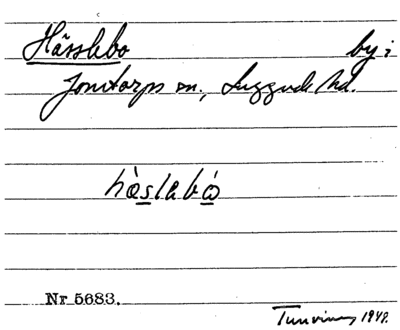 Hässlebo by i
Jonstorps sn., Luggude hd.
hàslabó
Nr 5683.
1948.